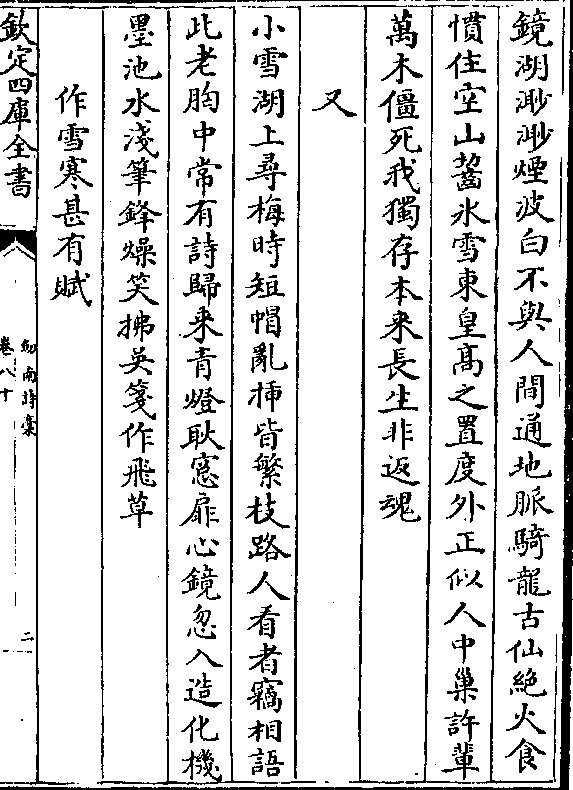 鏡湖渺渺煙波白不與人間通地脈騎龍古仙絶火食
慣住空山齧氷雪東皇髙之置度外正似人中巢許輩
萬木僵死我獨存本来長生非返魂
又
小雪湖上尋梅時短帽亂揷皆繁枝路人看者竊相語
此老胸中常有詩歸来青燈耿窓扉心鏡忽入造化機
墨池水淺筆鋒燥笑拂吳箋作飛草
作雪寒甚有賦
欽定四庫全書
劒南詩槀
卷八十
二